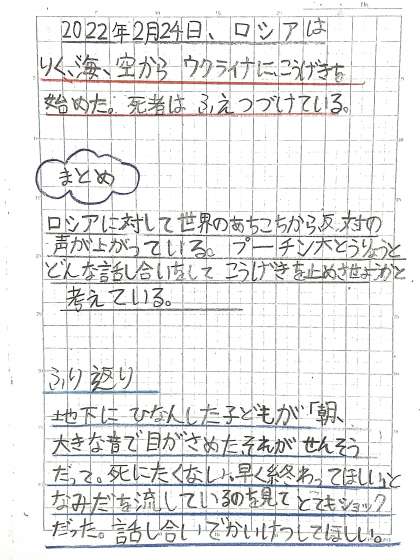 2022年2月24日、ロシアは
りく、海、空から ウクライナに、こうげきを
始めた。死者は ふえつづけている。
まとめ
ロシアに対して世界のあちこちから反対の
声が上がっている。 プーチン大とうりょうと
どんな話し合いをして こうげきを止めさせようかと
考えている。
ふり返り
地下に ひなんした子どもが「朝、
大きな音で目がさめた。それが せんそう
だって。死にたくない、早く終わってほしい」と
なみだを流しているのを見て とてもショック
だった。話し合いでかいけつしてほしい。